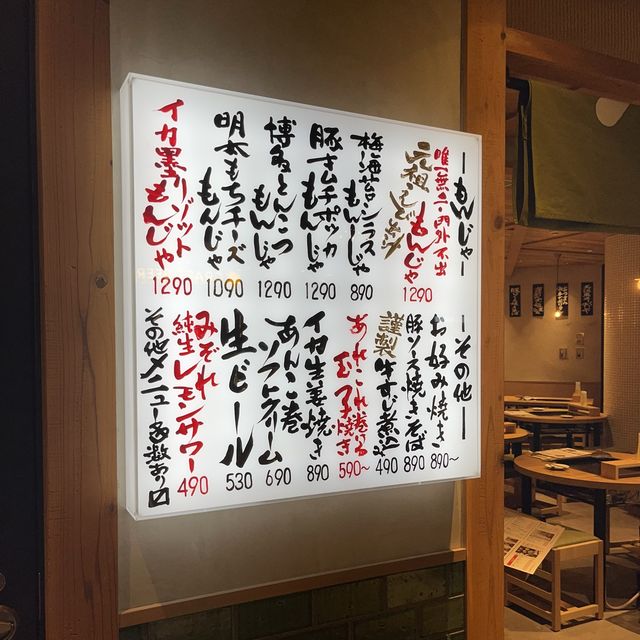 ーもんじゃー
唯一無二・門外不出
元祖
もんじゃ
1290
梅海苔シラス
もんじゃ
890
豚キムチポッカ
もんじゃ
1290
博多とんこつ
もんじゃ
1290
明太もちチーズ
もんじゃ
1090
イカ墨リゾット
もんじゃ
1290
ーその他ー
お好み焼き
890〜
豚ソース焼きそば
890
謹製
牛すじ煮込
490
あれこれ巻いる
玉子焼き
590〜
イカ生姜焼き
890
あんこ巻
ソフトクリーム
690
生ビール
530
みぞれ
純生レモンサワー
490
その他メニュー多数あり〼